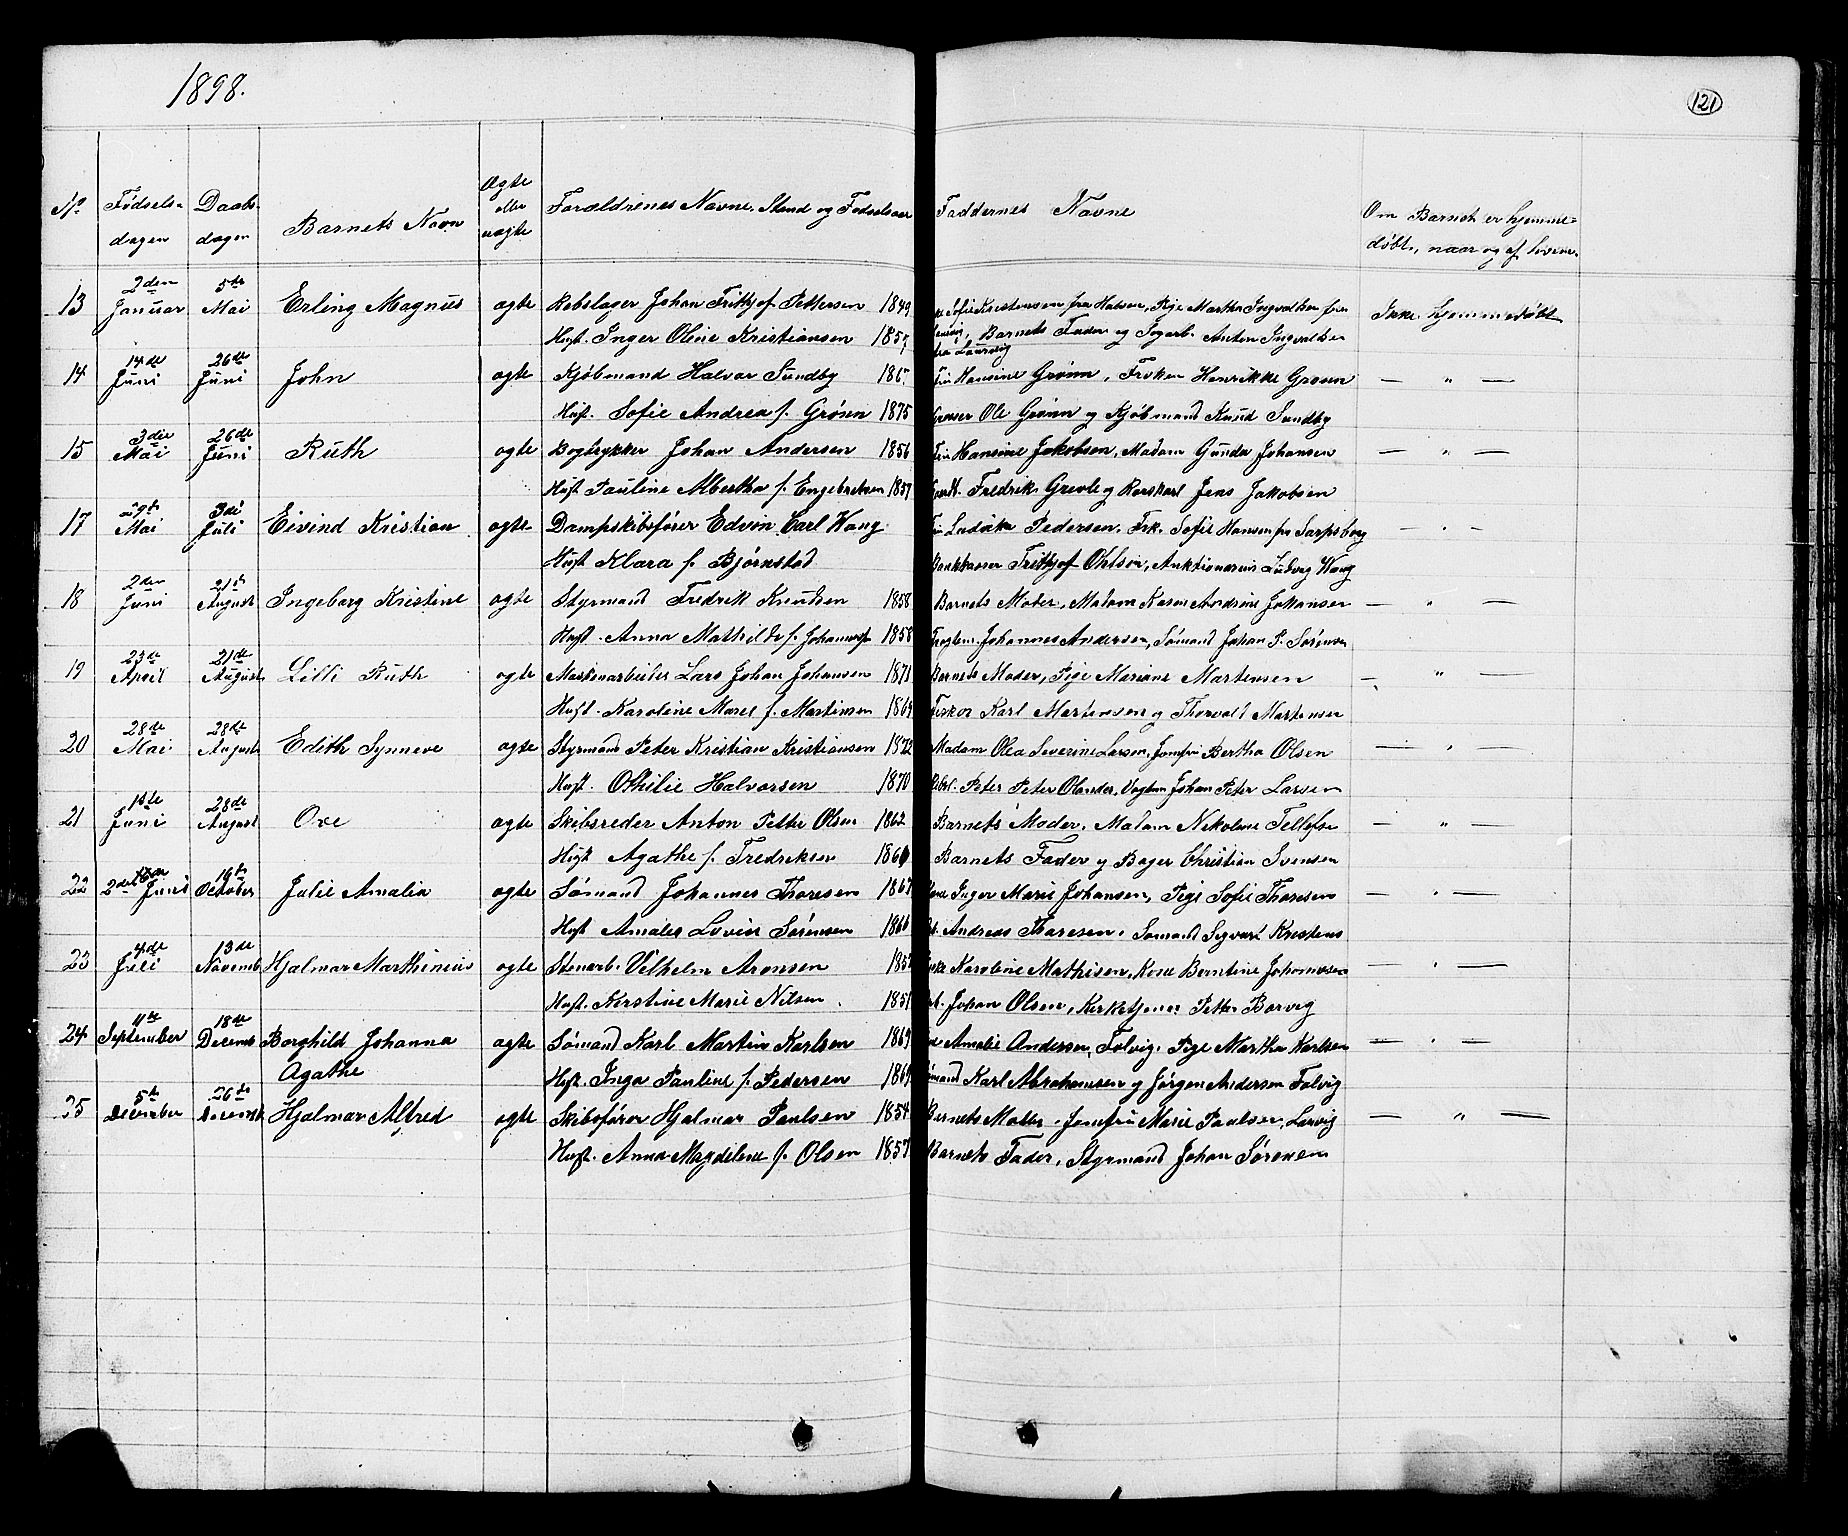 1898.
121
No Fødsels- dagen Daabs- dagen Barnets Navn Ægte eller uægte Forældrenes Navne, Stand og Fødselsaar Faddernes Navne Om Barnet er hjemme- døbt, naar og af hvem.
13 2den Januar 5te Mai Erling Magnus ægte Rebslager Johan Frithjof Pettersen 1849 Sofie Kristensen fra Halsen, Pige Martha Ingvaldsen fra Ikke hjemmedøbt
Hust. Inger Oline Kristiansen 1857 Barnets Fader og Fogarb. Anton Ingvaldsen
fra Laurvig
14 14de Juni 26de Juni John ægte Kjøbmand Halvor Sundby 186 Fru Hansine Grønn, Frøken Henrikke Grønn — " —
Hust. Sofie Andrea f. Grønn 1875 Ole Grønn og Kjøbmand Knud Sundby
15 3die Mai 26de Juni Ruth ægte Bogtrykker Johan Andersen 1856 Fru Hansine Jakobsen, Madam Gunda Johansen — " —
Hust Pauline Albertha f. Engebretsen 1857 Fredrik Grevle og Kørskarl Jens Jakobsen
17 29de Mai 3di Juli Eivind Kristian ægte Dampskibsfører Edvin Carl Wang Fru Ludvika Pedersen, Frk. Sofie Hansen fra Sarpsborg — " —
Hust Klara f. Bjørnstad Bankkasser Frithjof Ohlson, Auktionarius Ludvig Wang
18 2den Juni 21de August Ingeborg Kristine ægte Styrmand Fredrik Knudsen 1858 Barnets Moder, Madam Karen Andrine Johansen — " —
Hust. Anna Mathilde f. Johannesen 1858 Johannes Andersen, Sømand Johan P. Sørensen
19 23de April 21de August Lilli Ruth ægte Maskinarbeider Lars Johan Johansen 1871 Barnets Moder, Pige Mariane Martensen — " —
Hust. Karoline Marel f. Martinsen 1869 Fisker Karl Martensen og Thorvald Martensen
20 28de Mai 28de August Edith Synneve ægte Styrmand Peter Kristian Kristiansen 1872 Madam Olea Severine Larsen, Jomfru Bertha Olsen — " —
Hust. Othilie Halvorsen 1870 Peter Peter Olander, Vogtm Johan Peter Larsen
21 1ste Juni 28de August Ove ægte Skibsreder Anton Petter Olsen 1862 Barnets Moder, Madam Nikoline Tellefse — " —
Hust Agathe f. Fredriksen 1861 Barnets Fader og Bager Christian Svensen
22 2den Juni 19de October Julie Amalia ægte Sømand Johannes Thoresen 1867 Kone Inger Marie Johansen, Pige Sofie Thoresen — " —
Hust Amalie Lovise Sørensen 1866 Andreas Thoresen, Sømand Sigvart Kristens
23 4de Juli 13de Novemb Hjalmar Marthinius ægte Stenarb. Vilhelm Aronsen 185 Karoline Mathisen, Kone Berntine Johannesen — " —
Hust. Kirstine Marie Nilsen 1851 Johan Olsen, Kirketjener Petter Borvig
24 4de September 18de Decemb Borghild Johanna Agathe ægte Sømand Karl Martin Karlsen 1869 Amalie Andersen, Folvig, Pige Martha Karlsen — " —
Hust. Inga Pauline f. Pedersen 1869 Sømand Karl Abrahamsen og Jørgen Andersen Folvig
25 5te December 26de Decemb Hjalmar Alfred ægte Skibsfører Hjalmar Paulsen 1854 Barnets Moder, Jomfru Marie Paulsen, Larvig — " —
Hust. Anna Magdelene f. Olsen 1857 Barnets Fader, Styrmand Johan Sørensen